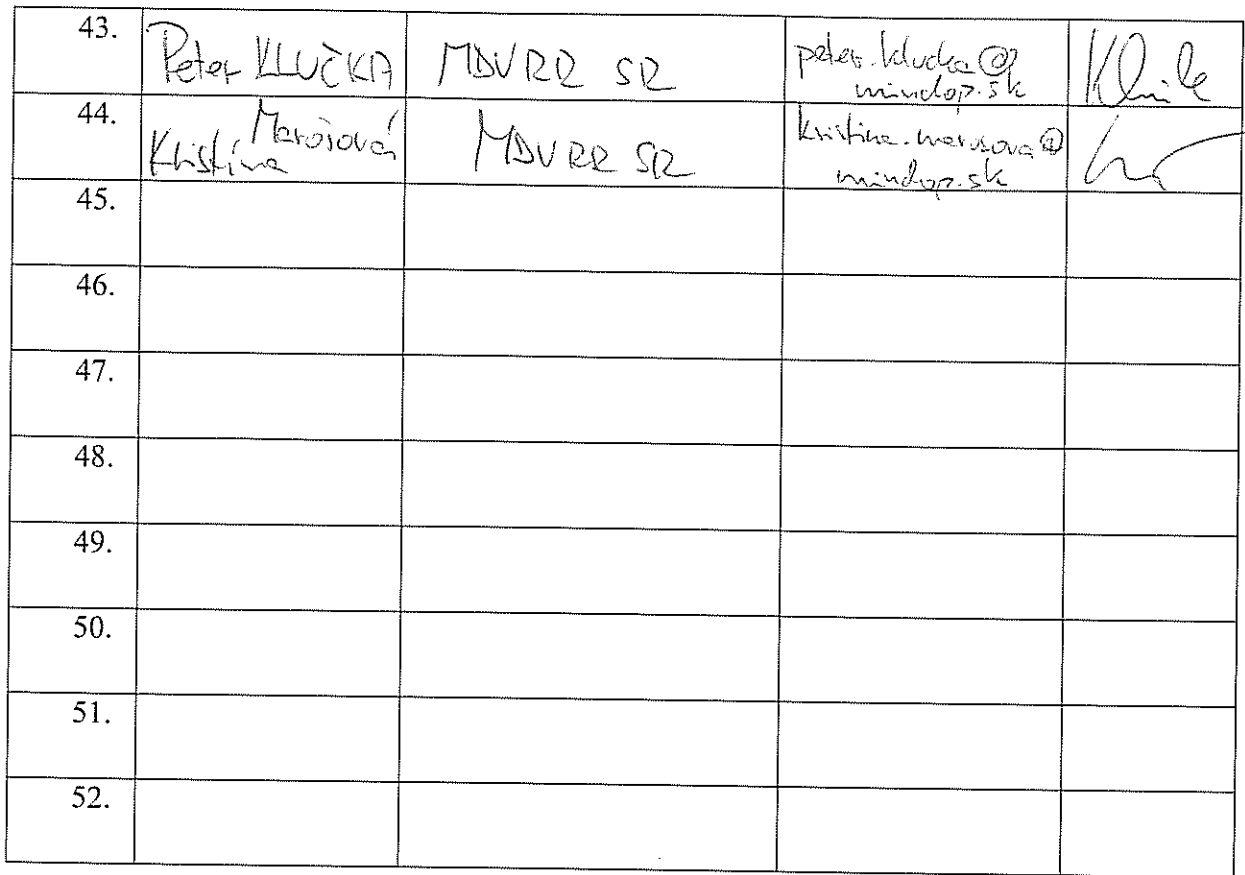 43. Peter KLUČKA MDVRR SR peter.klucka@
mindop.sk
44. Kristína Marošová MDVRR SR kristina.marosova@
mindop.sk
45.
46.
47.
48.
49.
50.
51.
52.